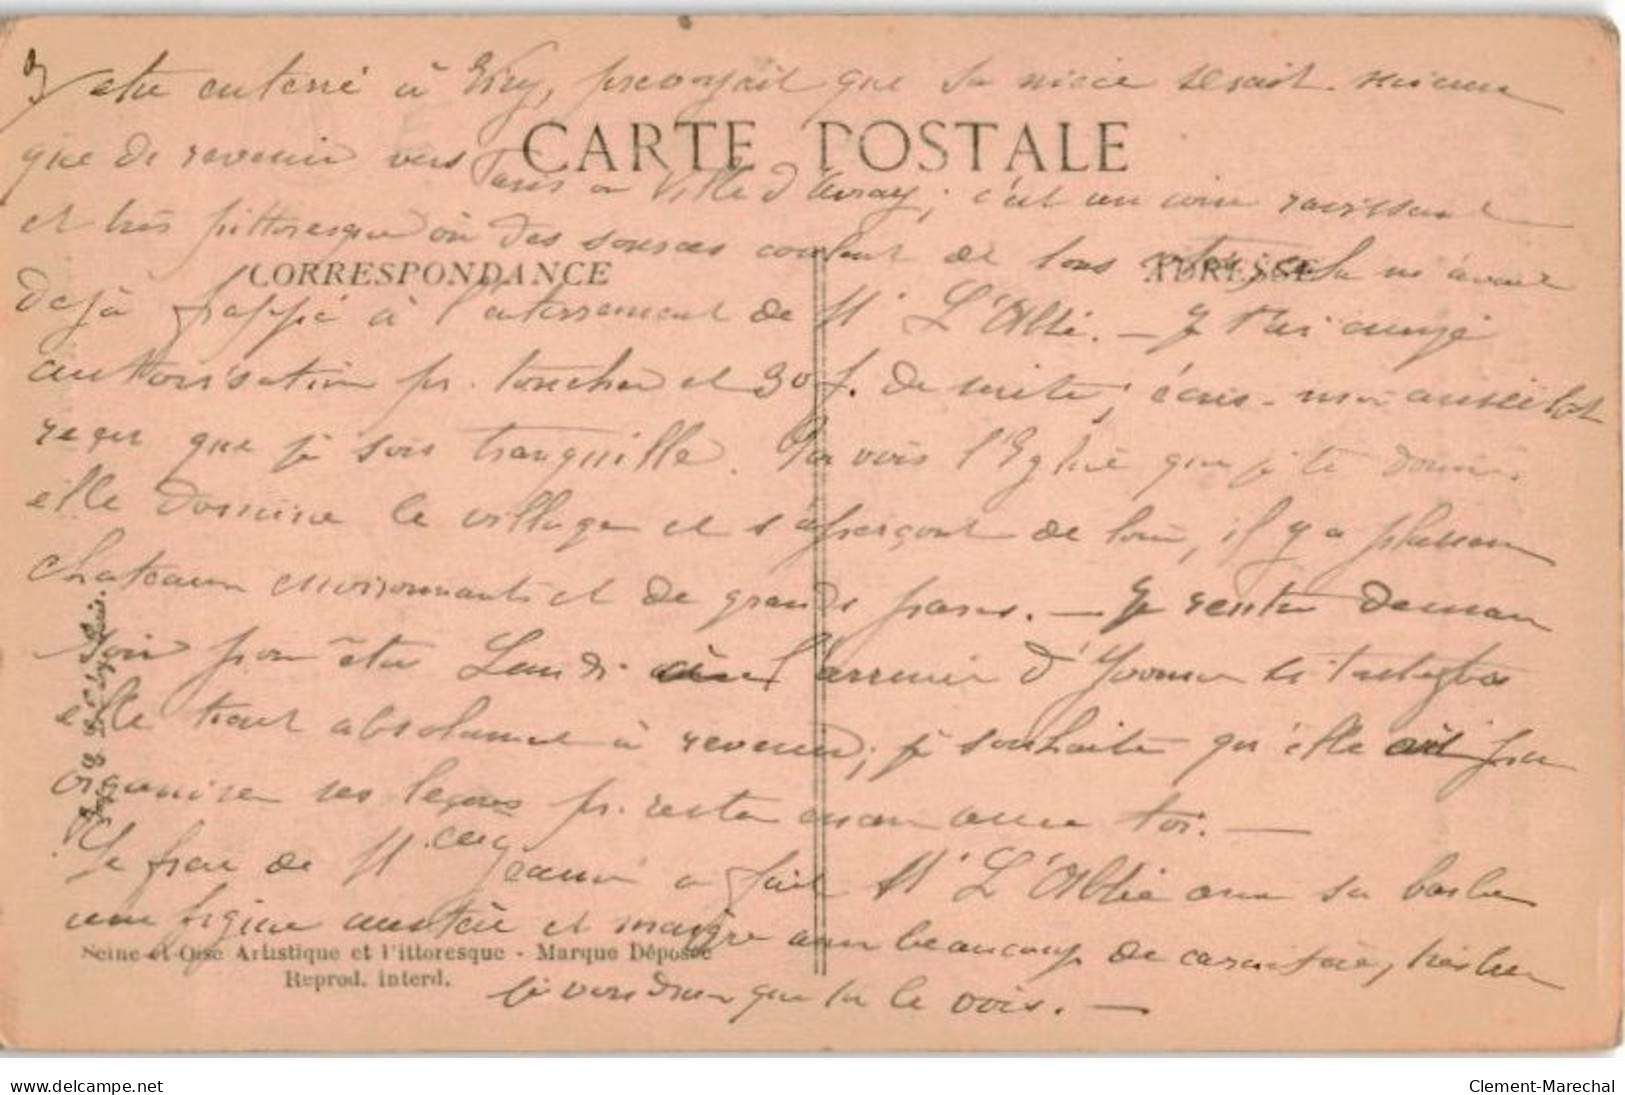 être enterré à Viry, prevoyait que sa nièce serait
que de revenir vers Paris ou Ville d'Avray; c'est un coin ravissant
CARTE POSTALE
et très pittoresque où des sources coulent de tous
CORRESPONDANCE
ADRESSE
déjà frappé à l'enterrement de Mr L'Abbé. — Je t'ai envoyé
autorisation pr. toucher et 30 f. de suite; écris-moi aussitôt
reçu que je sois tranquille. Tu vois l'Eglise que je te donne.
elle domine le village et s'aperçoit de loin, il y a plusieurs
chateaux environnants et de grands parcs. — Je rentre demain
soir pour être Lundi à l'arrivée d'Yvonne
elle tient absolument à revenir; je souhaite qu'elle ait pu
organiser ses leçons pr. rester avec toi. —
Le frère de M Jeanne a fait Mr L'Abbé avec sa barbe
une figure austère et maigre avec beaucoup de caractère, très bien
je voudrais que tu le vois. —
Seine-et-Oise Artistique et Pittoresque - Marque Déposée
Reprod. interd.
www.delcampe.net
Clement-Marechal